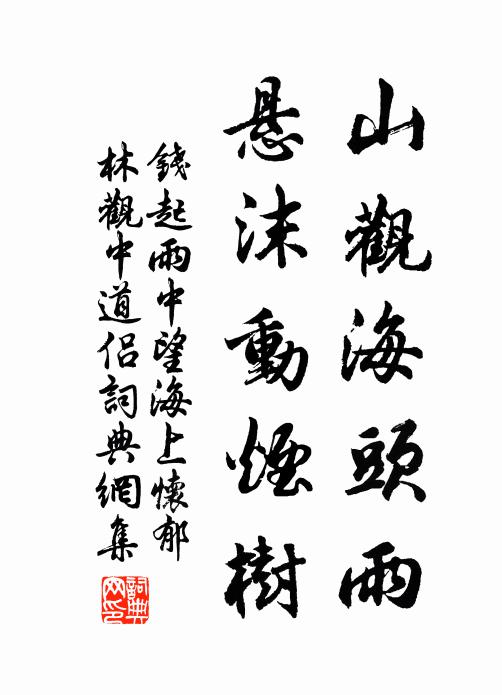 山觀海頭雨
悬沫動煙樹
錢起雨中望海上懷郁
林觀中道侶詞典網集
詞典网印